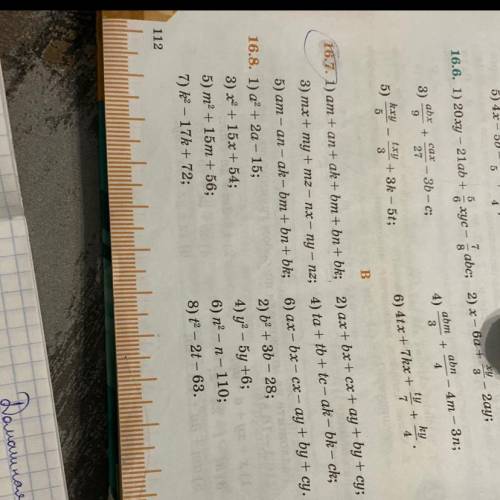 5) 4x
16.6. 1) 20xy − 21ab + 5/6 xyc − 7/8 abc; 2) x − 6a + xy/3 − 2ay;
3) abx/9 + cax/27 − 3b − c; 4) abm/3 + abn/4 − 4m − 3n;
5) kxy/5 − txy/3 + 3k − 5t; 6) 4tx + 7kx + ty/7 + ky/4.
B
16.7. 1) am + an + ak + bm + bn + bk; 2) ax + bx + cx + ay + by + cy;
3) mx + my + mz − nx − ny − nz; 4) ta + tb + tc − ak − bk − ck;
5) am − an − ak − bm + bn + bk; 6) ax − bx − cx − ay + by + cy.
16.8. 1) a² + 2a − 15; 2) b² + 3b − 28;
3) x² + 15x + 54; 4) y² − 5y + 6;
5) m² + 15m + 56; 6) n² − n − 110;
7) k² − 17k + 72; 8) t² − 2t − 63.
112